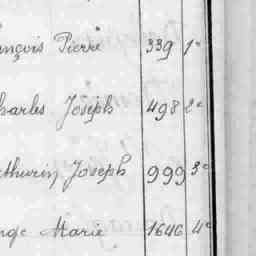 ançois Pierre 339 1e
harles Joseph 498 2e
athurin Joseph 999 3e
nge Marie 1646 4e